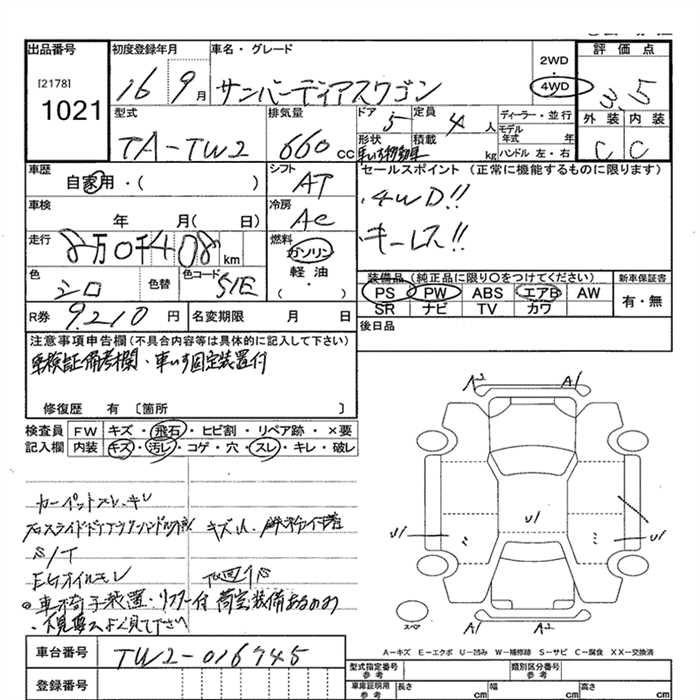 出品番号
[2178]
1021
初度登録年月
16 9月
車名・グレード
サンバーディアスワゴン
2WD
・
4WD
評価点
3.5
型式
TA-TW2
排気量
660 cc
ドア
5
定員
4 人
ディーラー・並行
モデル年式 年
外装 内装
C C
形状
車いす移動車
積載
kg
ハンドル 左・右
車歴
自家用・( )
シフト
AT
セールスポイント (正常に機能するものに限ります)
4WD!!
キーレス!!
車検
年 月( 日)
冷房
AC
走行
8万0千408 km
燃料
ガソリン
軽油
・( )
色
シロ
色替
色コード
51E
装備品(純正品に限り○をつけてください)
PS PW ABS エアB AW
SR ナビ TV カワ
新車保証書
有・無
R券
9,210 円
名変期限 月 日
後日品
注意事項申告欄(不具合内容等は具体的に記入して下さい)
車検証備考欄・車いす固定装置付
修復歴 有 〔箇所 〕
検査員 FW キズ・飛石・ヒビ割・リペア跡・×要
記入欄 内装 キズ・汚レ・コゲ・穴・スレ・キレ・破レ
カーペットスレ、キレ
キズ凹、鉄粉付着
S/T
EGオイルモレ
◎車椅子装置・リフター付
下見要ス よく見て下さい
A2 A1
U1 U1 U1
A1 A2
スペア
A-キズ E-エクボ U-凹み W-補修跡 S-サビ C-腐食 XX-交換済
車台番号
TW2-016745
登録番号
型式指定番号
参考
類別区分番号
参考
車庫証明用
参考
長さ cm
幅 cm
高さ cm